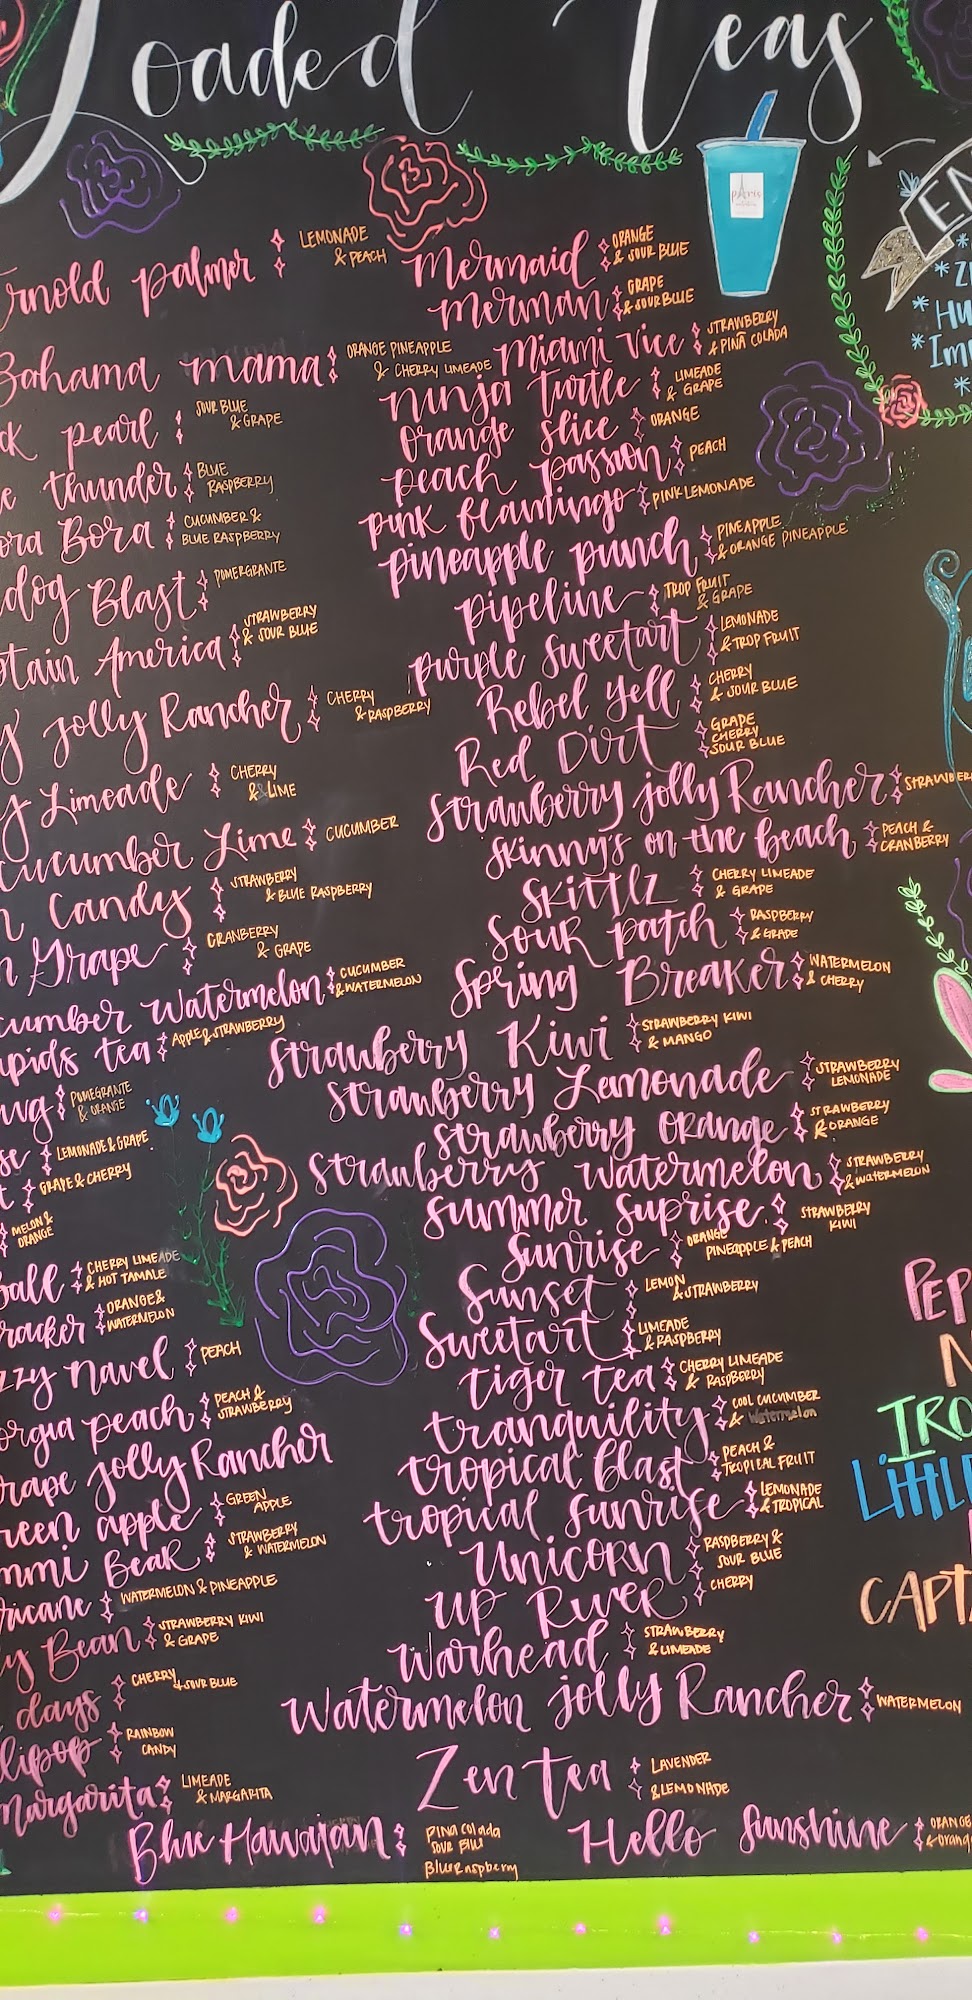 Loaded Teas
Paris
Arnold palmer LEMONADE & PEACH
Bahama mama ORANGE PINEAPPLE & CHERRY LIMEADE
ck pearl SOUR BLUE & GRAPE
e thunder BLUE RASPBERRY
ora Bora CUCUMBER & BLUE RASPBERRY
dog Blast POMERGRANTE
tain America STRAWBERRY & SOUR BLUE
y jolly Rancher CHERRY & RASPBERRY
y Limeade CHERRY & LIME
Cucumber Lime CUCUMBER
n Candy STRAWBERRY & BLUE RASPBERRY
n Grape CRANBERRY & GRAPE
cumber watermelon CUCUMBER & WATERMELON
upids tea APPLE & STRAWBERRY
awg POMEGRANTE & ORANGE
se LEMONADE & GRAPE
t GRAPE & CHERRY
MELON & ORANGE
ball CHERRY LIMEADE & HOT TAMALE
racker ORANGE & WATERMELON
zzy navel PEACH
orgia peach PEACH & STRAWBERRY
rape jolly Rancher
reen apple GREEN APPLE
mmi Bear STRAWBERRY & WATERMELON
ricane WATERMELON & PINEAPPLE
y Bean STRAWBERRY KIWI & GRAPE
days CHERRY & SOUR BLUE
llipop RAINBOW CANDY
margarita LIMEADE & MARGARITA
Blue Hawaiian PINA COLADA SOUR BLUE Blue Raspberry
mermaid ORANGE & SOUR BLUE
merman GRAPE & SOUR BLUE
miami vice STRAWBERRY & PIÑA COLADA
ninja turtle LIMEADE & GRAPE
orange slice ORANGE
peach passion PEACH
pink flamingo PINK LEMONADE
pineapple punch PINEAPPLE & ORANGE PINEAPPLE
pipeline TROP FRUIT & GRAPE
purple sweetart LEMONADE & TROP FRUIT
Rebel yell CHERRY & SOUR BLUE
Red Dirt GRAPE CHERRY SOUR BLUE
Strawberry jolly Rancher STRAWBER
Skinny's on the beach PEACH & CRANBERRY
Skittlz CHERRY LIMEADE & GRAPE
Sour patch RASPBERRY & GRAPE
Spring Breaker WATERMELON & CHERRY
Strawberry Kiwi STRAWBERRY KIWI & MANGO
Strawberry Lemonade STRAWBERRY LEMONADE
Strawberry Orange STRAWBERRY & ORANGE
Strawberry watermelon STRAWBERRY & WATERMELON
Summer Suprise STRAWBERRY KIWI
Sunrise ORANGE PINEAPPLE & PEACH
Sunset LEMON & STRAWBERRY
Sweetart LIMEADE & RASPBERRY
tiger tea CHERRY LIMEADE & RASPBERRY
tranquility COOL CUCUMBER & Watermelon
tropical blast PEACH & TROPICAL FRUIT
tropical sunrise LEMONADE & TROPICAL
Unicorn RASPBERRY & SOUR BLUE
Up River CHERRY
Warhead STRAWBERRY & LIMEADE
Watermelon jolly Rancher WATERMELON
Zen tea LAVENDER & LEMONADE
Hello Sunshine ORANGE & orang
EN
* ZI
* HU
* Im
*
PEP
N
IRO
LITTLE
CAPT